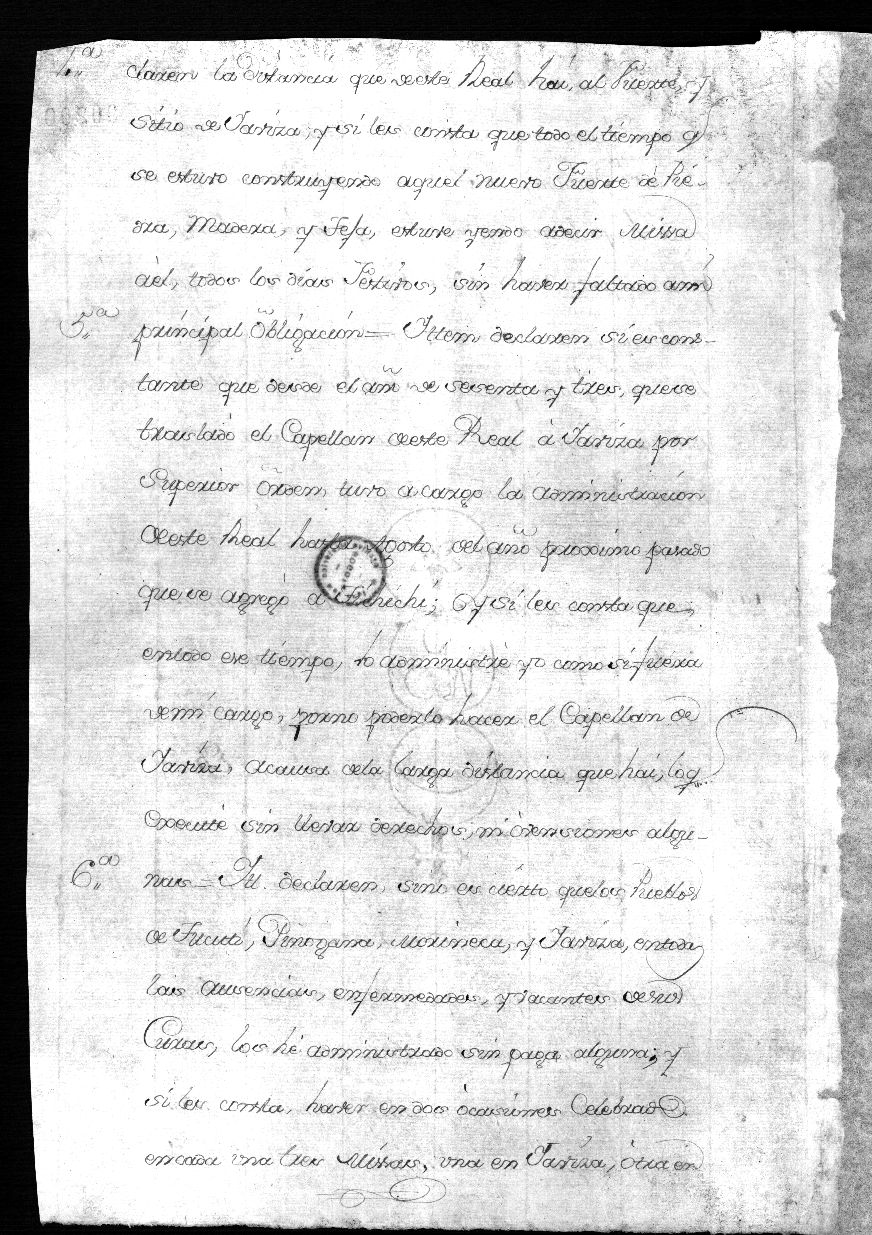 claren la distancia que de este Real hai, al Fuerte, y
sitio de Yaviza; y si les consta que todo el tiempo q
se estuvo construyendo aquel nuevo Fuerte de Pie-
dra, Madera, y Teja, estuve yendo adecir Missa
àèl, todos los dias Festivos, sin haver faltado ami
5.ª principal Obligacion = Ittem declaren si es cons-
tante que desde el año de sesenta y tres, que se
traslado el Capellan de este Real à Yaviza por
Superior Orden, tuvo a cargo la administracion
de este Real hasta Agosto del año proximo pasado
que se agregò a Fichichi; Y si les consta que,
entodo ese tiempo, lo administrè yo como si fuera
demi cargo, por no poderlo hacer el Capellan de
Yaviza, acausa dela larga distancia que hai, loq
executè sin llevar derechos, ni òvensiones algu-
6.ª nas = Itt. declaren, sino es cierto, quelos Pueblos
de Tucutì, Pinogana, Molineca, y Yaviza, entodas
las Ausencias, enfermedades, y vacantes desus
Curas, los hè administrado sin paga alguna; y
si les consta, haver en dos òcasiones Celebrado
encada una tres Missas, una en Yaviza, òtra en